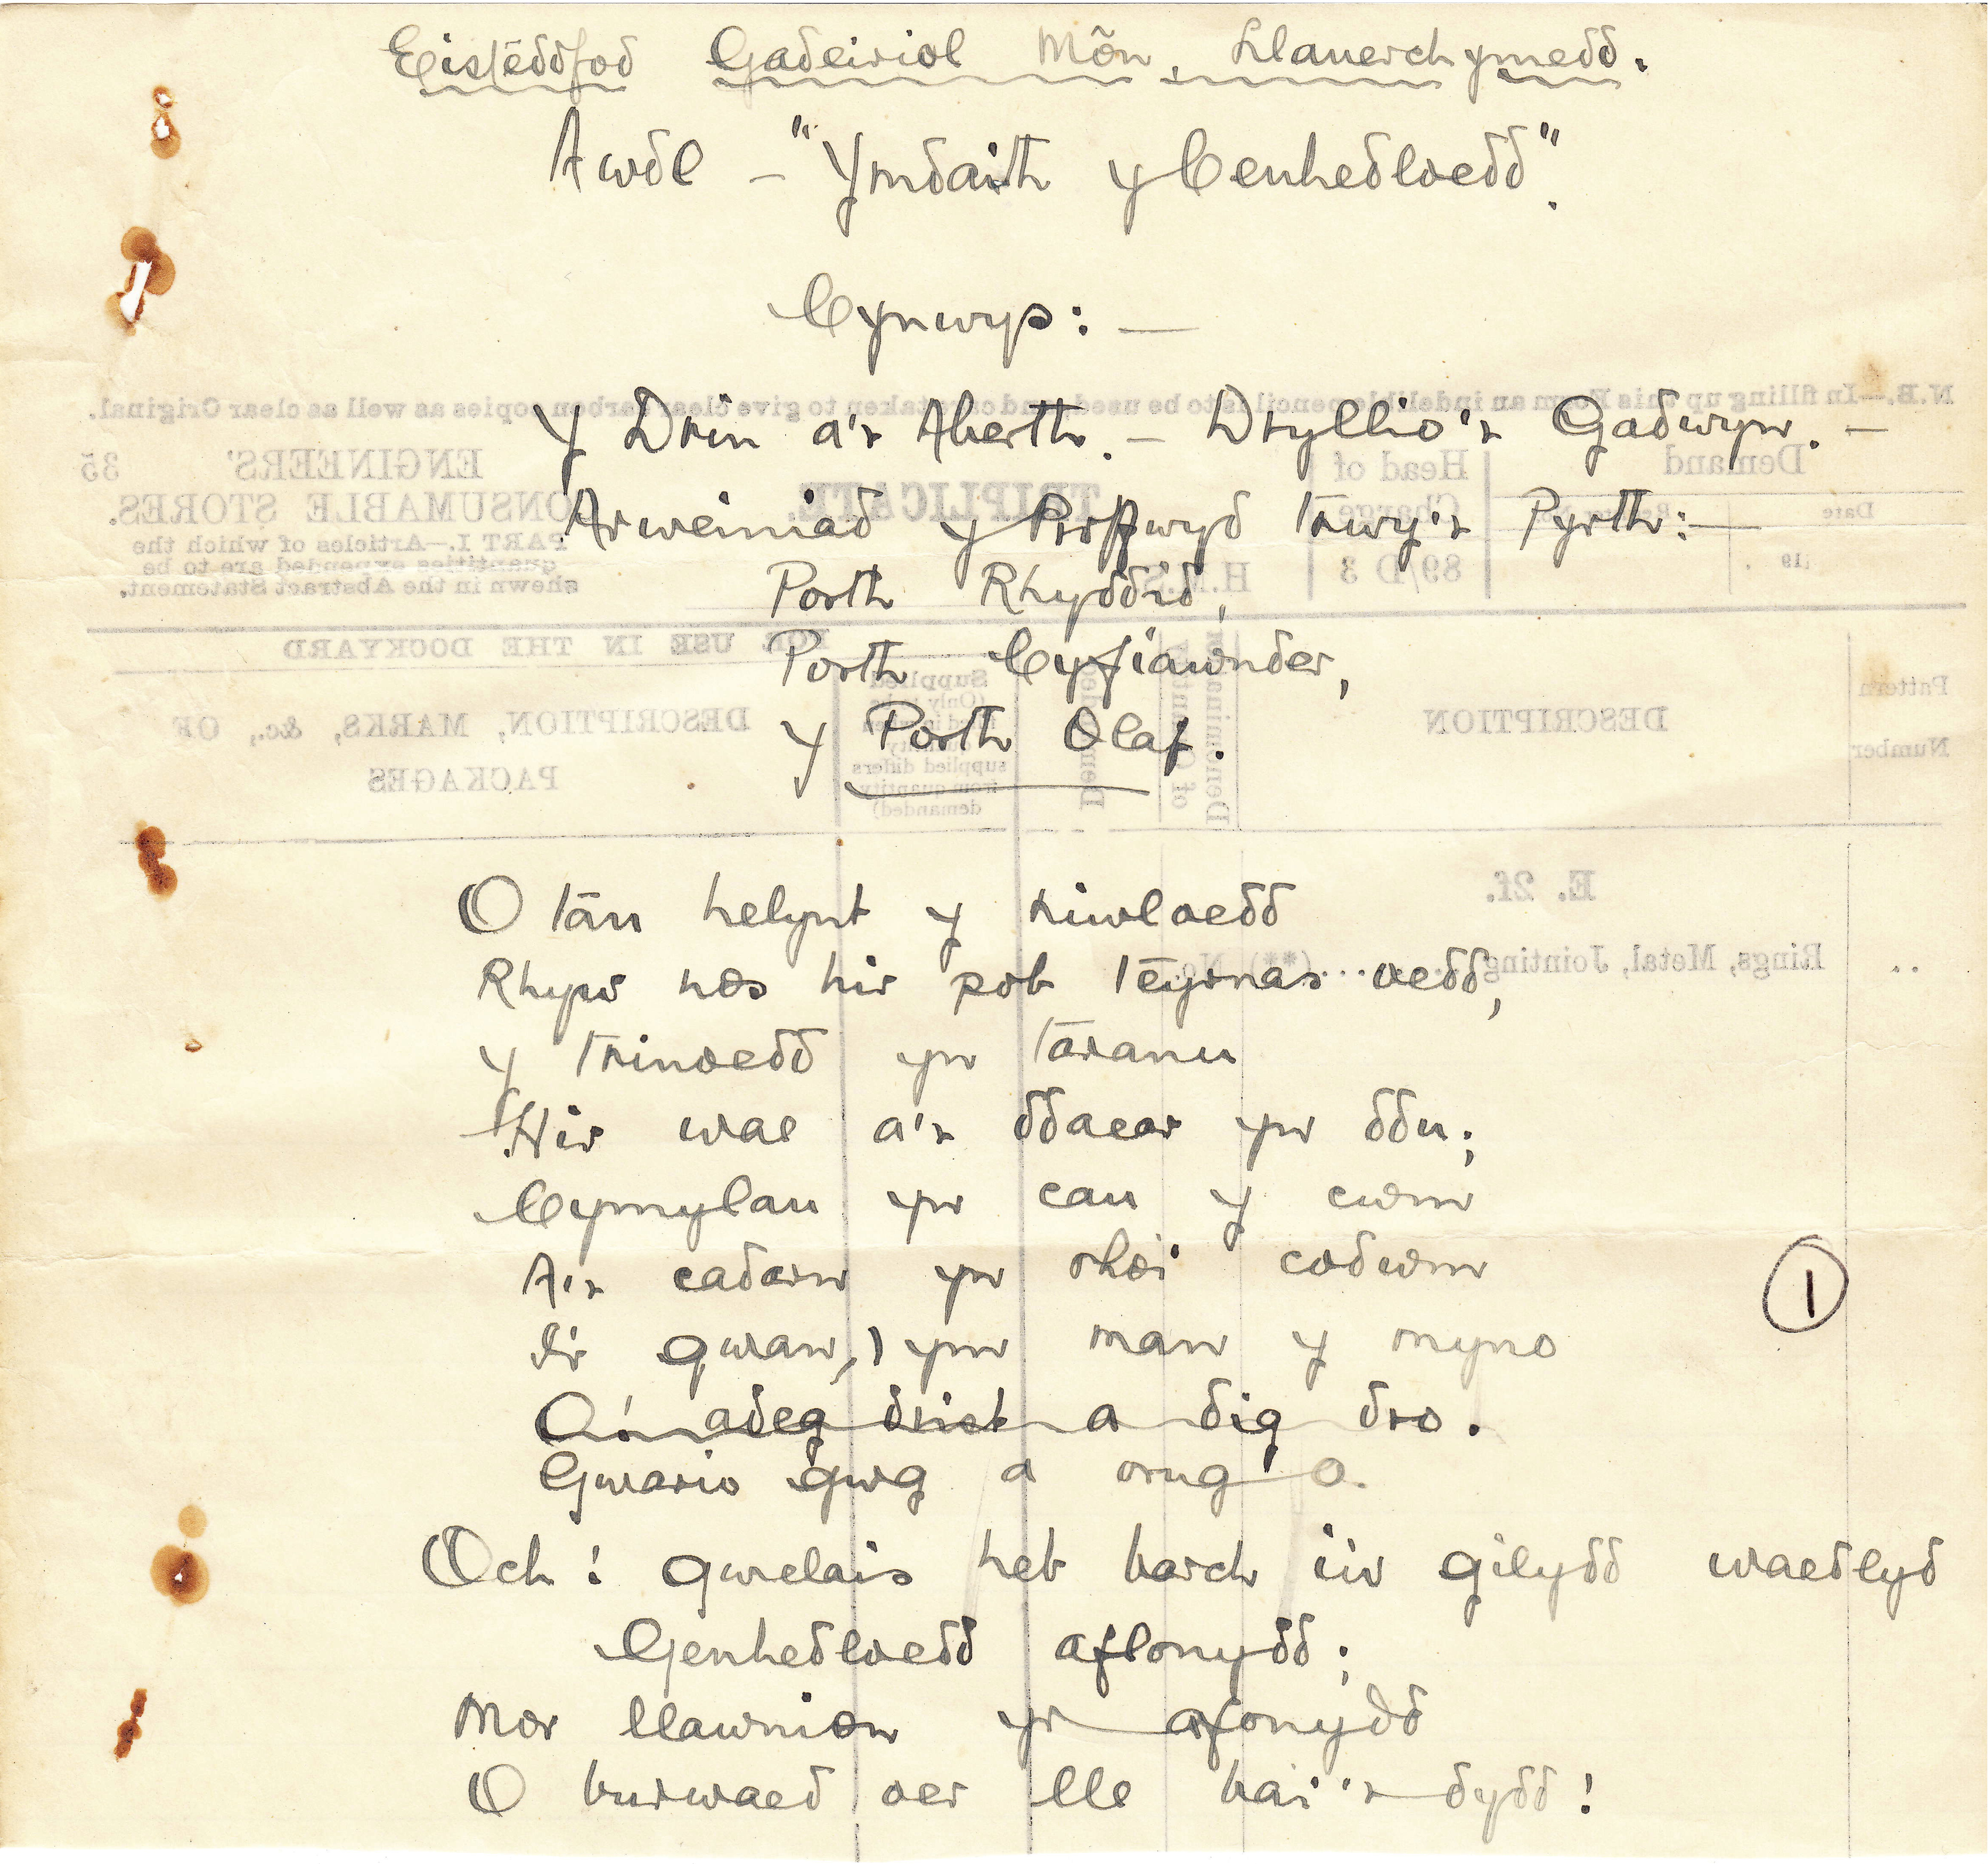 Eisteddfod Gadeiriol Môn, Llanerchymedd.
Awdl – "Ymdaith y Cenhedloedd".
Cynwys: —
Y Drin a'r Aberth. – Dryllio'r Gadwyn. –
Arweiniad y Proffwyd trwy'r Pyrth: —
Porth Rhyddid,
Porth Cyfiawnder,
Y Porth Olaf.
O tan helynt y niwloedd
Rhyw nos hir pob teyrnas oedd,
Y trinoedd yn taranu
Hir wae a'r ddaear yn ddu;
Cymylau yn cau y cwm
A'r cadarn yn rhoi codwm
I'r gwan, ym man y myno
O'i adeg drist a dig dro.
Gwario gwg a orug o.
Och! gwelais heb barch i'w gilydd waedlyd
Genhedloedd aflonydd;
Mor llawnion yr afonydd
O burwaed oer lle bai'r dydd!
1
N.B.—In filling up this Form an indelible pencil is to be used, and care taken to give clear carbon copies as well as clear Original.
ENGINEERS' 35
CONSUMABLE STORES.
PART I.—Articles of which the
quantities expended are to be
shewn in the Abstract Statement.
TRIPLICATE.
H.M.S.
Head of
Charge
89/D 3
Demand
Date
19 .
FOR USE IN THE DOCKYARD
DESCRIPTION, MARKS, &c., OF
PACKAGES
Supplied
supplied differs
from quantity
demanded)
Denomination
of Quantity
DESCRIPTION
Pattern
Number
E. 2f.
Rings, Metal, Jointing (**) No.